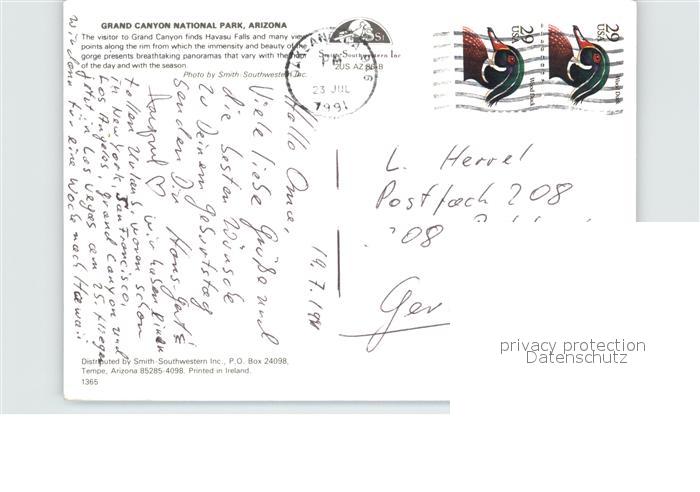 GRAND CANYON NATIONAL PARK, ARIZONA
The visitor to Grand Canyon finds Havasu Falls and many view
points along the rim from which the immensity and beauty of the
gorge presents breathtaking panoramas that vary with the hour
of the day and with the season.
Photo by Smith-Southwestern Inc.
Smith-Southwestern Inc
2US AZ
PM
23 JUL
1991
29
USA
Wood Duck
29
USA
Wood Duck
19.7.191
Hallo Oma,
Viele liebe Grüße und
die besten Wünsche
zu Deinem Geburtstag
senden Dir Hans-Gert &
Irmgard ♡ wir haben einen
tollen Urlaub, waren schon
in New York, San Francisco,
Los Angeles, Grand Canyon und
jetzt in Las Vegas am 25. fliegen
wir dann für eine Woche nach Hawaii
L. Herrel
Postfach 208
208
Ger
Distributed by Smith-Southwestern Inc., P.O. Box 24098,
Tempe, Arizona 85285-4098. Printed in Ireland.
1365
privacy protection
Datenschutz